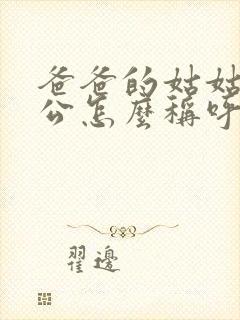 爸爸的姑姑
公怎麼稱呼
翟邊